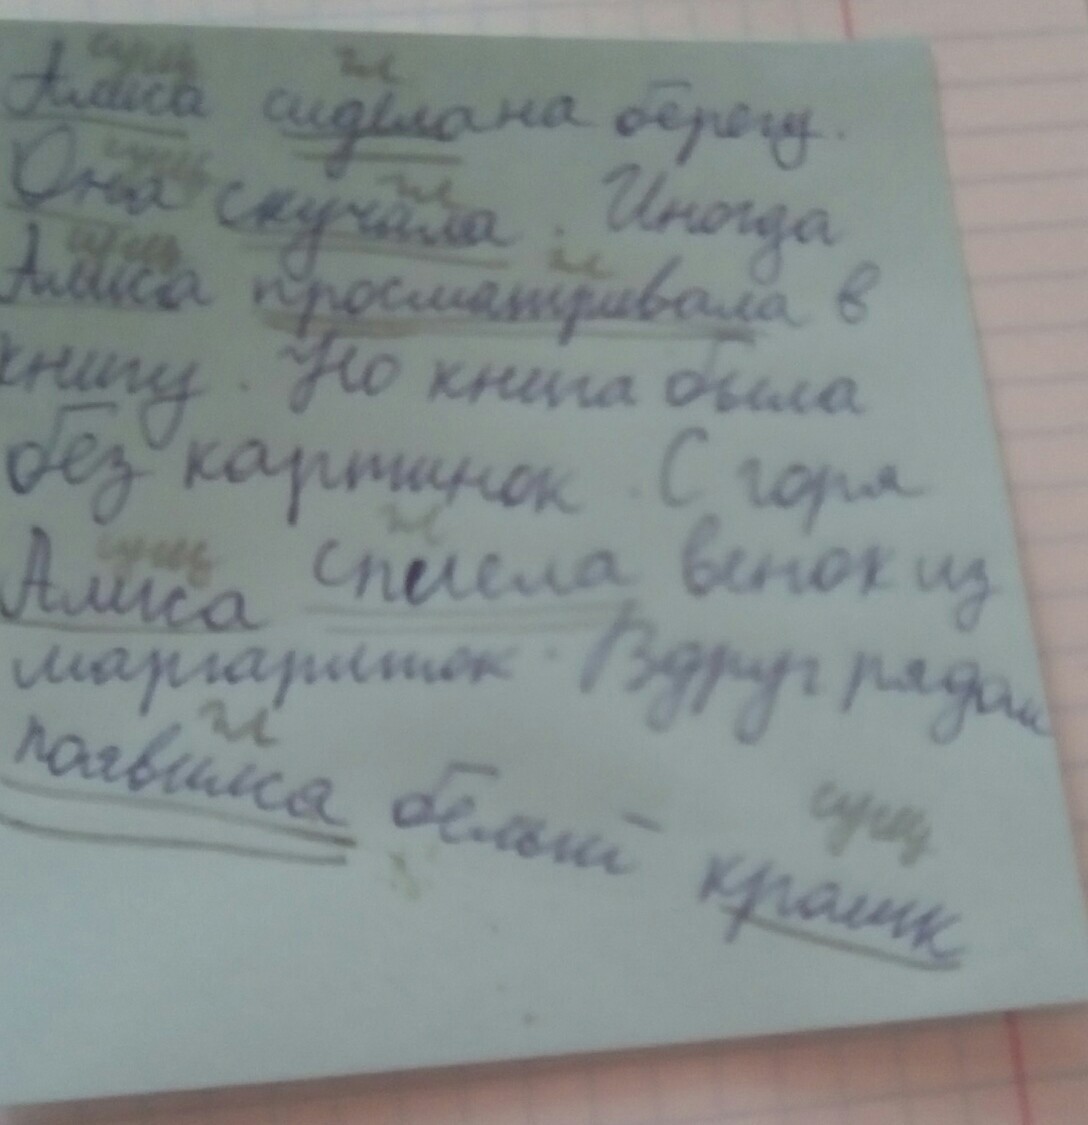 сущ гл
Алиса сидела на берегу.
сущ гл
Она скучала. Иногда
сущ гл
Алиса просматривала в
книгу. Но книга была
без картинок. С горя
сущ гл
Алиса сплела венок из
маргариток. Вдруг рядом
гл
появился белый кролик
сущ